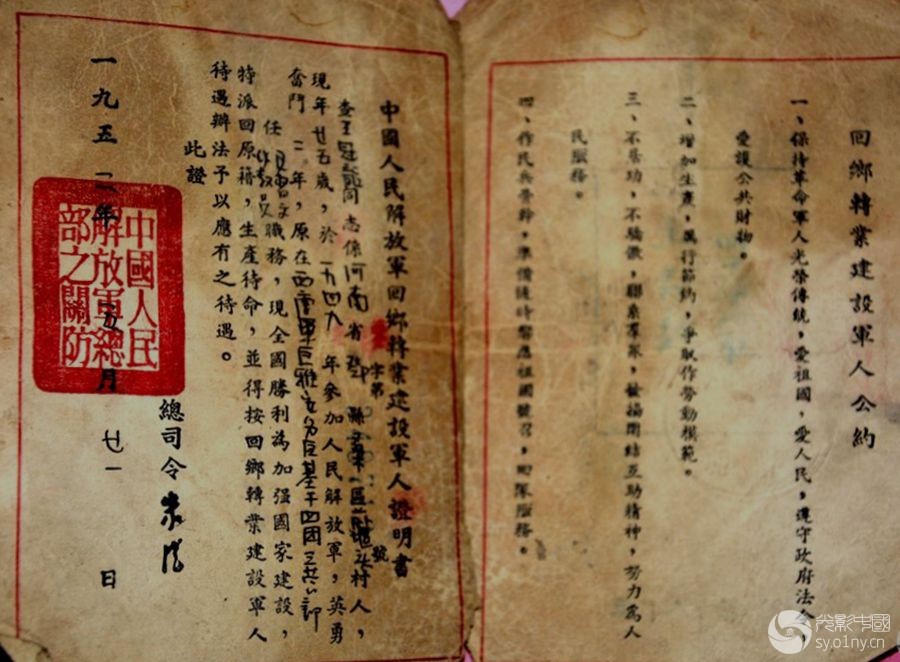 回鄉轉業建設軍人公約
一、保持革命軍人光榮傳統，愛祖國，愛人民，遵守政府法令，
愛護公共財物。
二、增加生產，厲行節約，爭取作勞動模範。
三、不居功，不驕傲，聯系羣眾，發揚團結互助精神，努力為人
民服務。
四、作民兵骨幹，準備隨時響應祖國號召，回隊服務。
中國人民解放軍回鄉轉業建設軍人證明書
字第 號
查王 同志係河南省 縣 區 村人，
現年廿五歲，於一九四九年參加人民解放軍，英勇
奮鬥二年，原在西康軍區雅安分區基干四團三營
任 職務，現全國勝利為加强國家建設，
特派回原籍，生產待命，並得按回鄉轉業建設軍人
待遇辦法予以應有之待遇。
此證
總司令 朱德
一九五二年 月廿一日
中國人民
解放軍總
部之關防
光影中國
sy.o1ny.cn